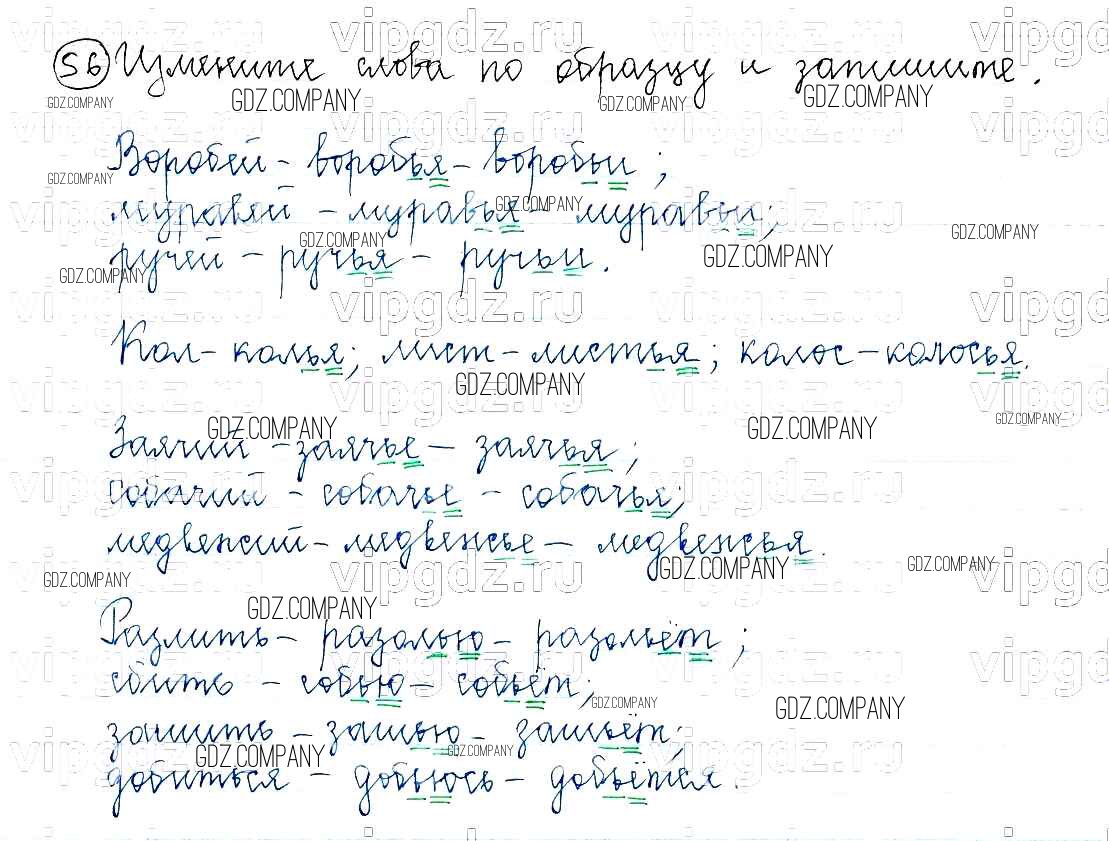 56 Измените слова по образцу и запишите.
Воробей - воробья - воробьи;
муравей - муравья - муравьи;
ручей - ручья - ручьи.
Кол - колья; лист - листья; колос - колосья.
Заячий - заячье - заячья;
собачий - собачье - собачья;
медвежий - медвежье - медвежья.
Разлить - разолью - разольёт;
сбить - собью - собьёт;
зашить - зашью - зашьёт;
добиться - добьюсь - добьётся.